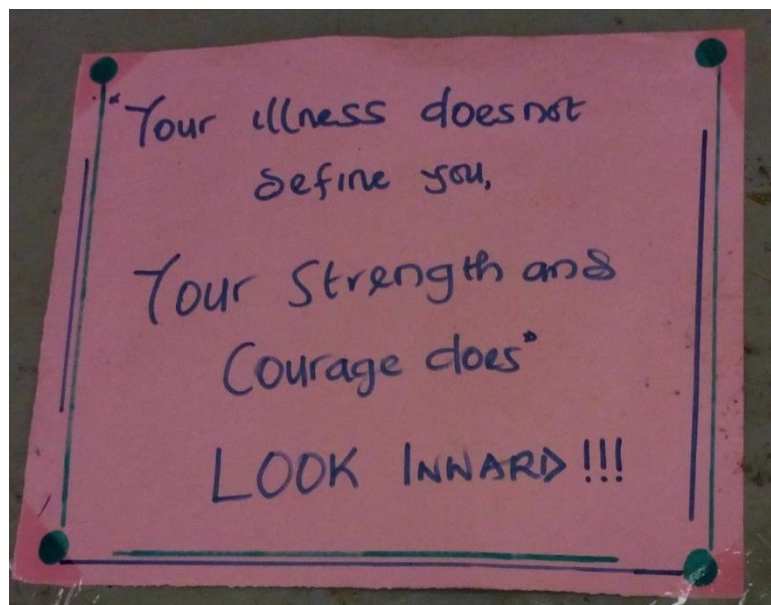 "Your illness does not
define you,
Your Strength and
Courage does"
LOOK INWARD!!!